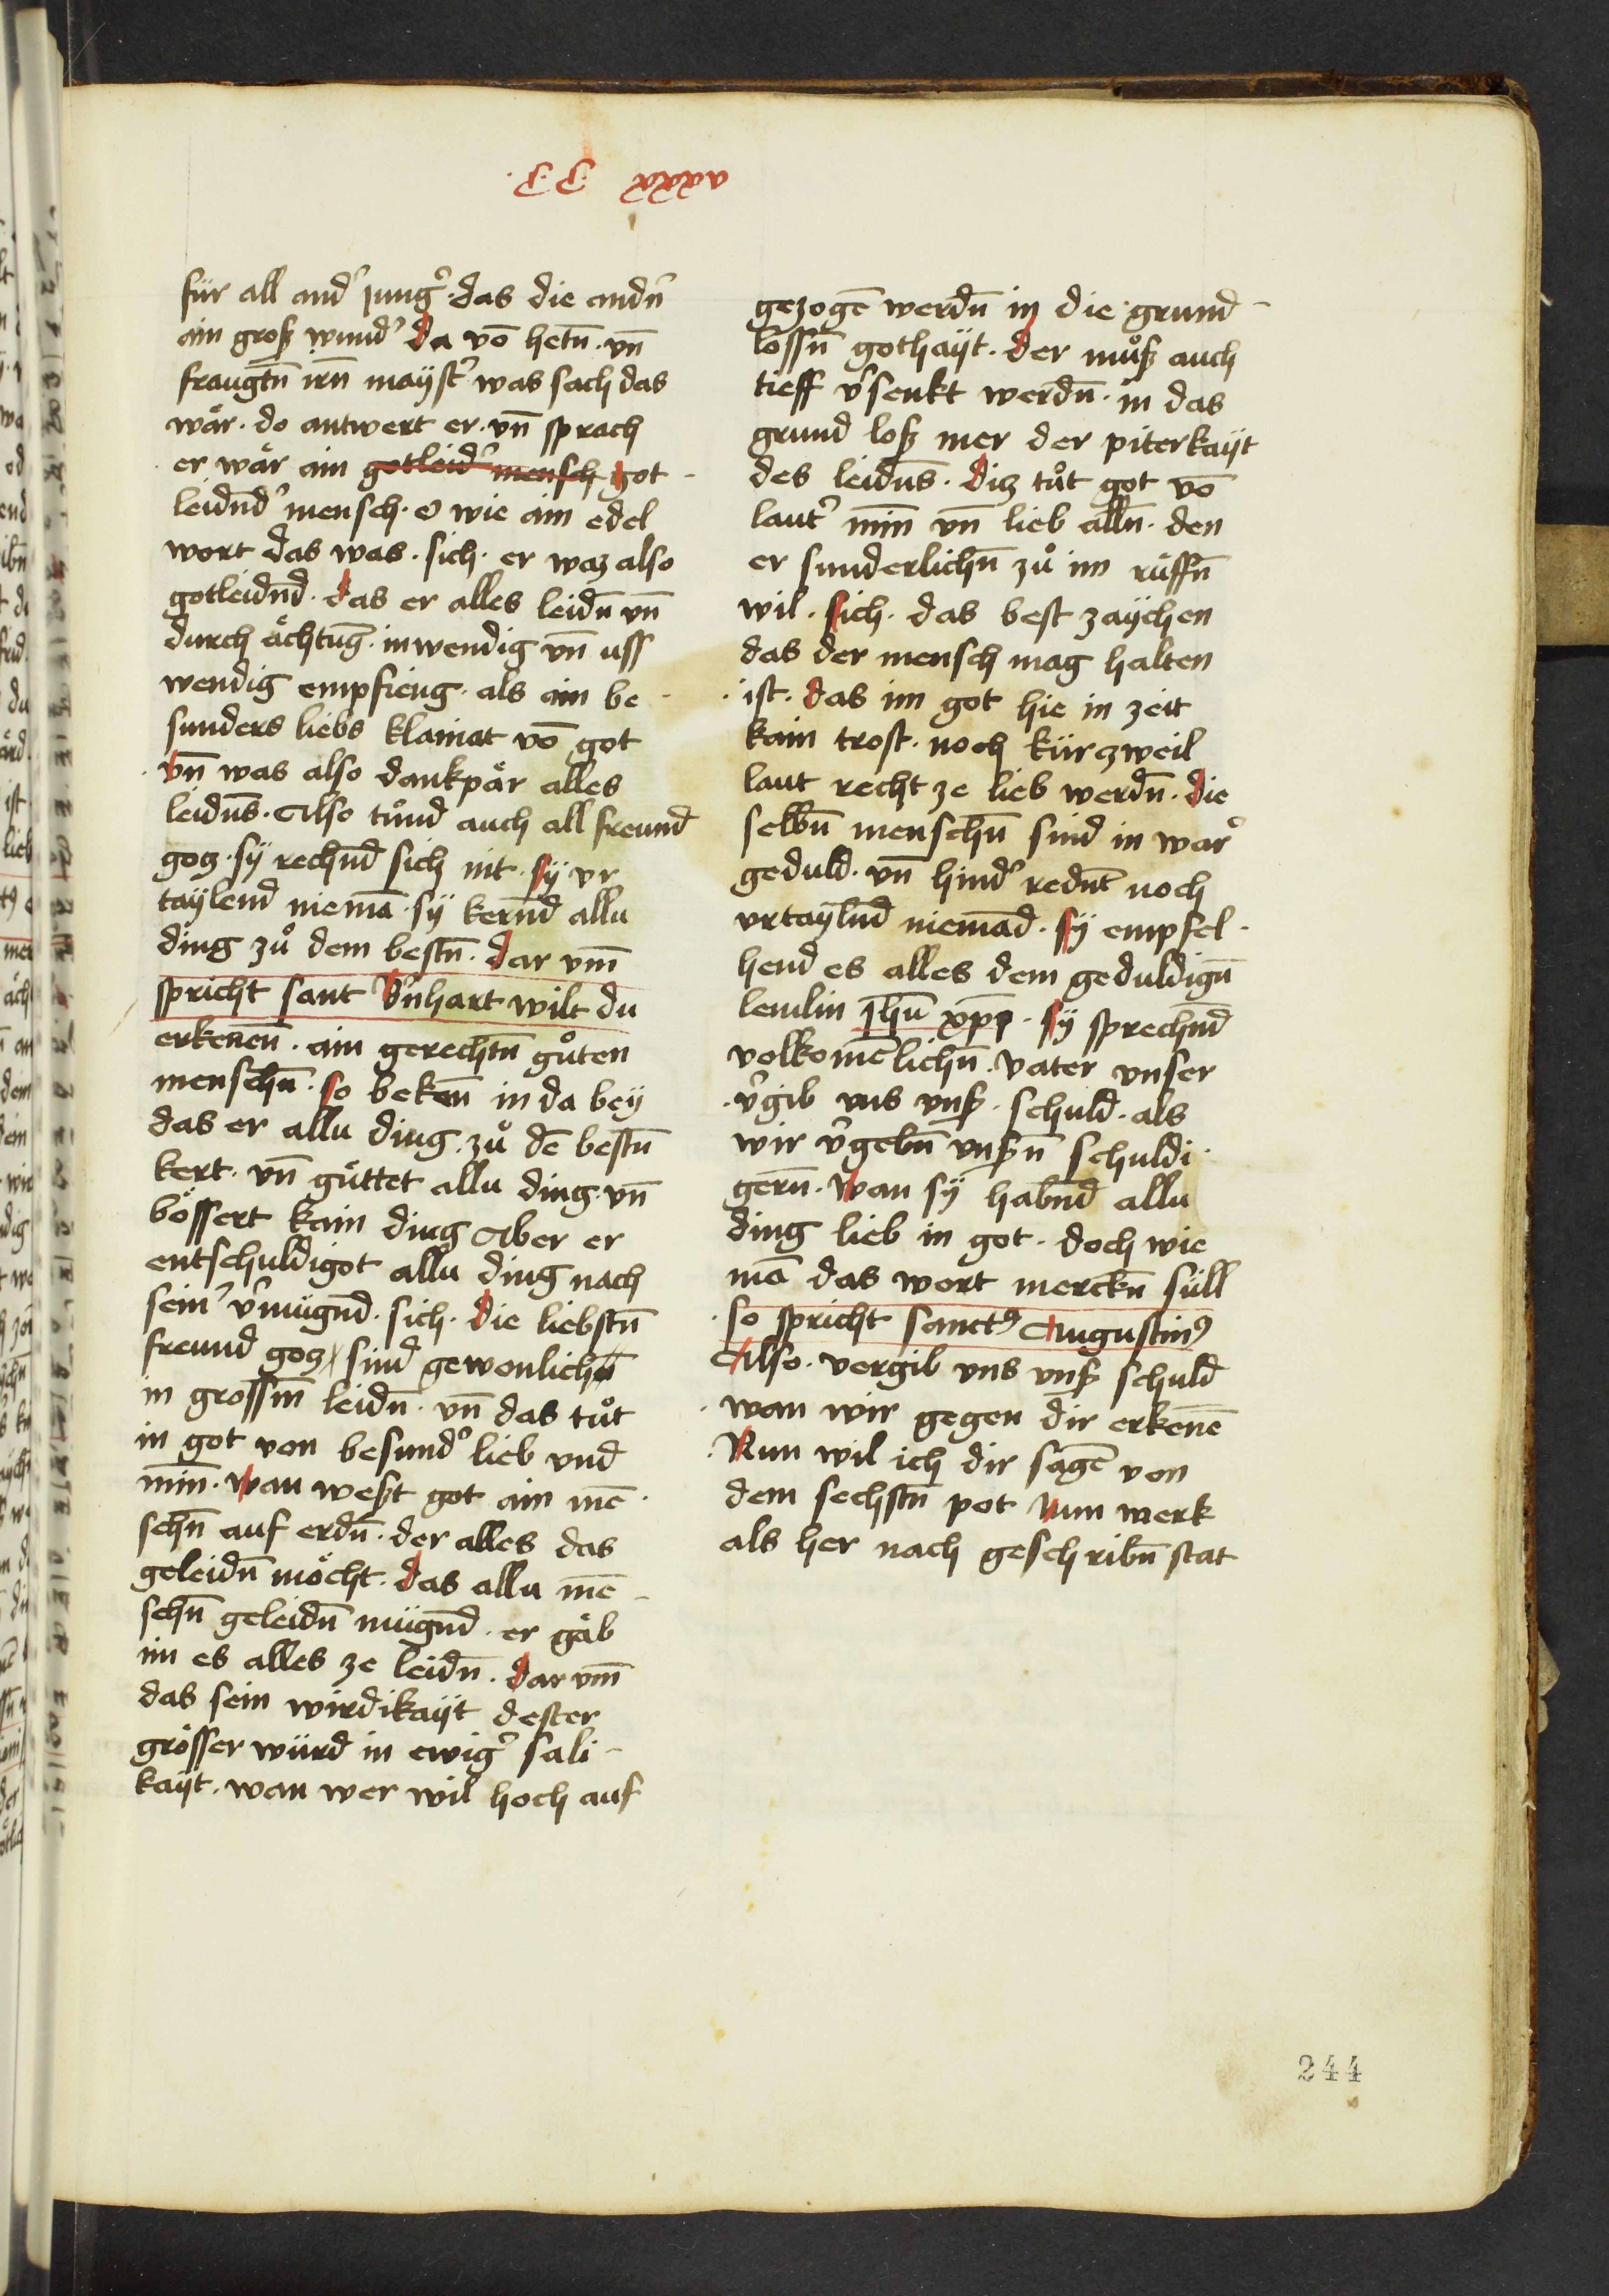 ·C·C· xxxxv
für all and' jung'· das die andn̄
ain groß wund' da vō hetn̄· vn̄
fraugtn̄ irn̄ mayst' was sach das
wär· do antwert er· vn̄ sprach
er wär ain gotleid' mensch got-
leidn̄d' mensch· O wie ain edel
wort das was· sich· er waz also
gotleidn̄d· das er alles leidn̄ vn̄
durch ächtūg· inwendig vn̄ uss
wendig empfieng· als ain be-
sunders liebs klainat vō got
vn̄ was also dankpär alles
leidn̄s· Also tůnd auch all freund
goz· sÿ rechn̄d sich nit· sÿ vr
taÿlend niemā· sÿ kern̄d allu
ding zů dem bestn̄· dar vm̄
spricht sant B'nhart wilt du
erkenen̄· ain gerechtn̄ gůten
menschn̄· so beken̄ in da beÿ
das er allu ding· zů dē bestn̄
kert· vn̄ güttet allu ding· vn̄
bössert kain ding Aber er
entschuldigot allu ding nach
sein' v'mügn̄d· sich· die liebstn̄
freund goz sind gewonlichn̄
in grossm̄ leidn̄· vn̄ das tůt
in got von besund' lieb vnd
min̄· wan west got ain mē-
schn̄ auf erdn̄· der alles das
geleidn̄ möcht· das allu mē-
schn̄ geleidn̄ mügn̄d· er gäb
im es alles ze leidn̄· dar vm̄
das sein wirdikaÿt dester
grösser würd in ewig' säli-
kaÿt· wan wer wil hoch auf
gezogē werdn̄ in die· grund-
lossn̄ gothaÿt· der můß auch
tieff v'senkt werdn̄· in das
grund loß mer der piterkaÿt
des leidn̄s· diz tůt got vō
laut' min̄ vn̄ lieb alln̄· den
er sunderlichn̄ zů im rüffn̄
wil· sich· das best zaÿchen
das der mensch mag halten
ist· das im got hie in zeit
kain trost· noch kürzweil
laut recht ze lieb werdn̄· die
selbn̄ menschn̄ sind in war'
geduld· vn̄ hind' redn̄t noch
vrtaÿln̄d niemād· sÿ empfel-
hend es alles dem geduldign̄
lemlin jhū xp̄i· sÿ sprechn̄d
volkomēlichn̄· vater vnser
v'gib vns vnß· schuld· als
wir v'gebn̄ vnßn̄ schuldi-
gern̄· wan sÿ habn̄d allu
ding lieb in got· doch wie
mā das wort merckn̄ süll
so spricht sanctꝰ Augustinꝰ
Also· vergib vns vnß schuld
wan wir gegen dir erkenē
Nun wil ich dir sagē von
dem sechstn̄ pot Nun merk
als her nach geschribn̄ stat
244